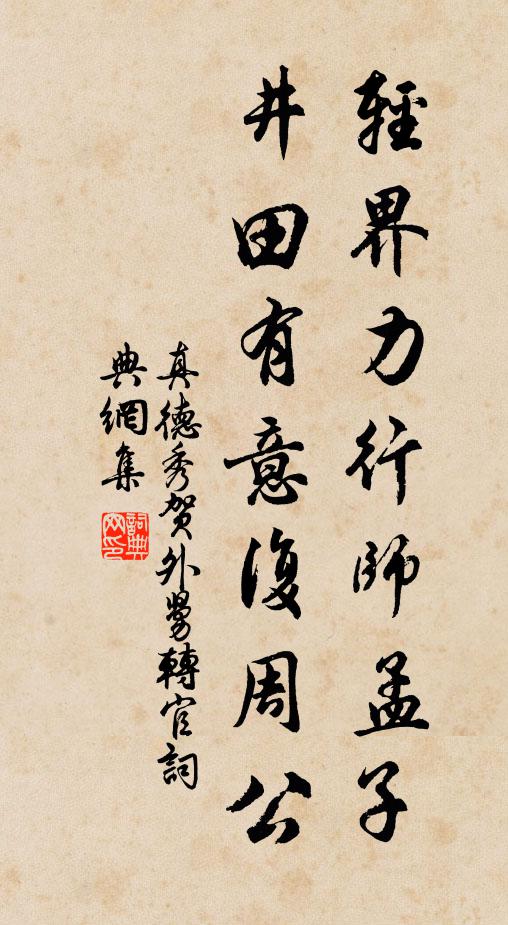 輕界力行師孟子
井田有意復周公
真德秀賀外舅轉官詞
典網集
詞典
网印